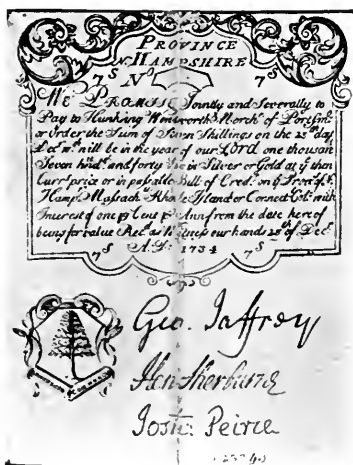 PROVINCE
N. HAMPSHIRE
7S No 7S
WE PROMISE Jointly and Severally to
Pay to Hunking Wentworth Mercht. of Portsmo.
or Order the Sum of Seven Shillings on the 28th day
Decm. wch will be in the year of our LORD one thousand
Seven hundd. and forty in Silver or Gold at ye then
Currt. price or in passable Bill of Cred. on ye Provs. of N.
Hamp. Massach. Rhode Island or Connect. Col. with
Interest of one pr. Cent pr. Ann from the date hereof
being for value Recd. as Witness our hands 28th of Decr
7S A.D: 1734 7S
Geo. Jaffrey
Hen Sherburne
Josha Peirce